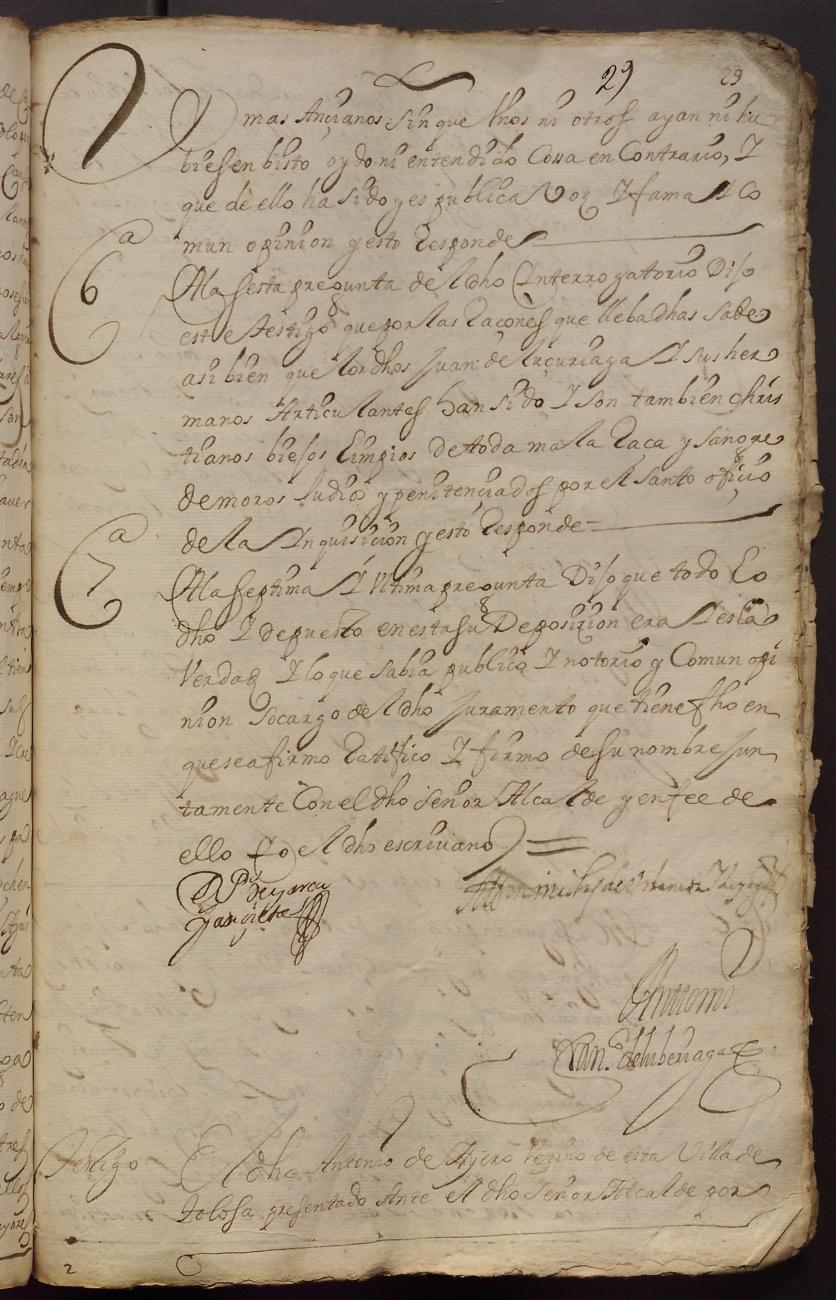 29 29
mas Ançianos sin que Unos ni otros ayan ni hu
biesen bisto oydo ni entendido Cossa en Contrario, Y
que de ello ha sido y es publica Voz Y fama Y Co
mun opinion y esto Responde
6ª
A la sesta pregunta del dho Interrogatorio Dijo
este testigo que por las Raçones que lleba dhas sabe
asi bien que los dhos Juan de Luçuriaga Y sus her
manos Articulantes han sido Y son tambien chris
tianos biejos Limpios de toda mala Raça y sangre
de moros Judios y penitençiados por el santo ofiçio
de la Inquisiçion y esto Responde
7ª
A la septima Y Ultima pregunta Dijo que todo Lo
dho Y depuesto en esta su Deposiçion era Y es la
Verdad Y lo que sabia publico Y notorio y Comun opi
nion so cargo del dho Juramento que tiene fho en
que se afirmo Ratifico Y firmo de su nombre Jun
tamente Con el dho señor Alcalde y en fee de
ello yo el dho escriuano
Ante mi
Fran.co de luberiaga
Testigo
El dho Antonio de Ayero Vezino de esta Villa de
Tolosa presentado Ante el dho Señor Alcalde por
2